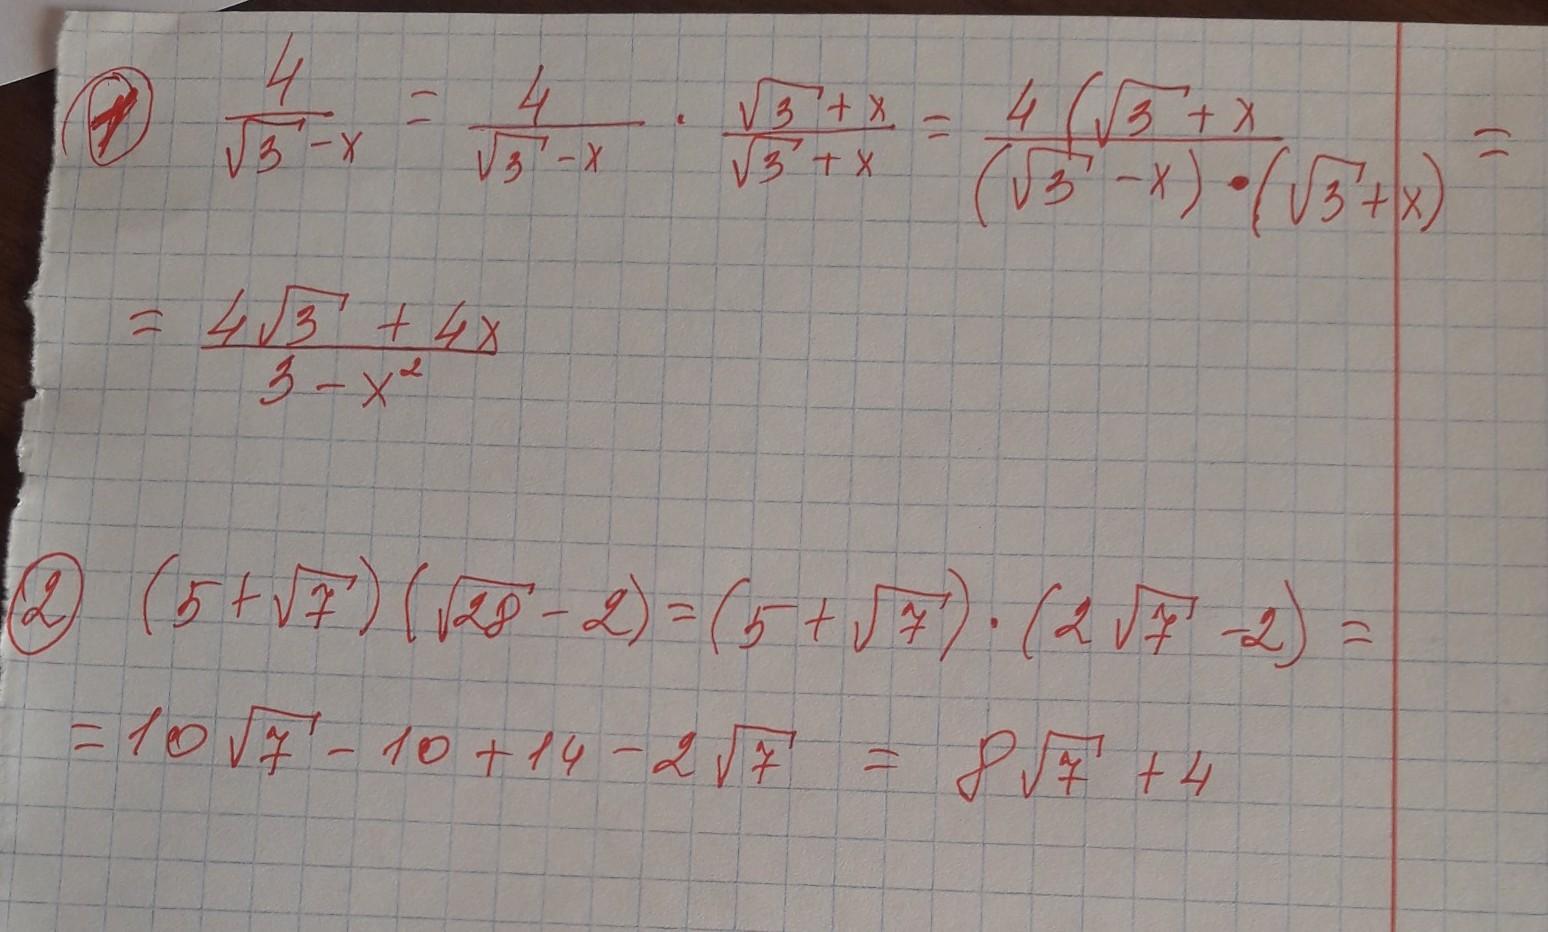 ① 4/(√3 - x) = 4/(√3 - x) · (√3 + x)/(√3 + x) = 4(√3 + x/(√3 - x)·(√3 + x) =
= (4√3 + 4x)/(3 - x²)
② (5+√7)(√28 - 2) = (5+√7)·(2√7 - 2) =
= 10√7 - 10 + 14 - 2√7 = 8√7 + 4